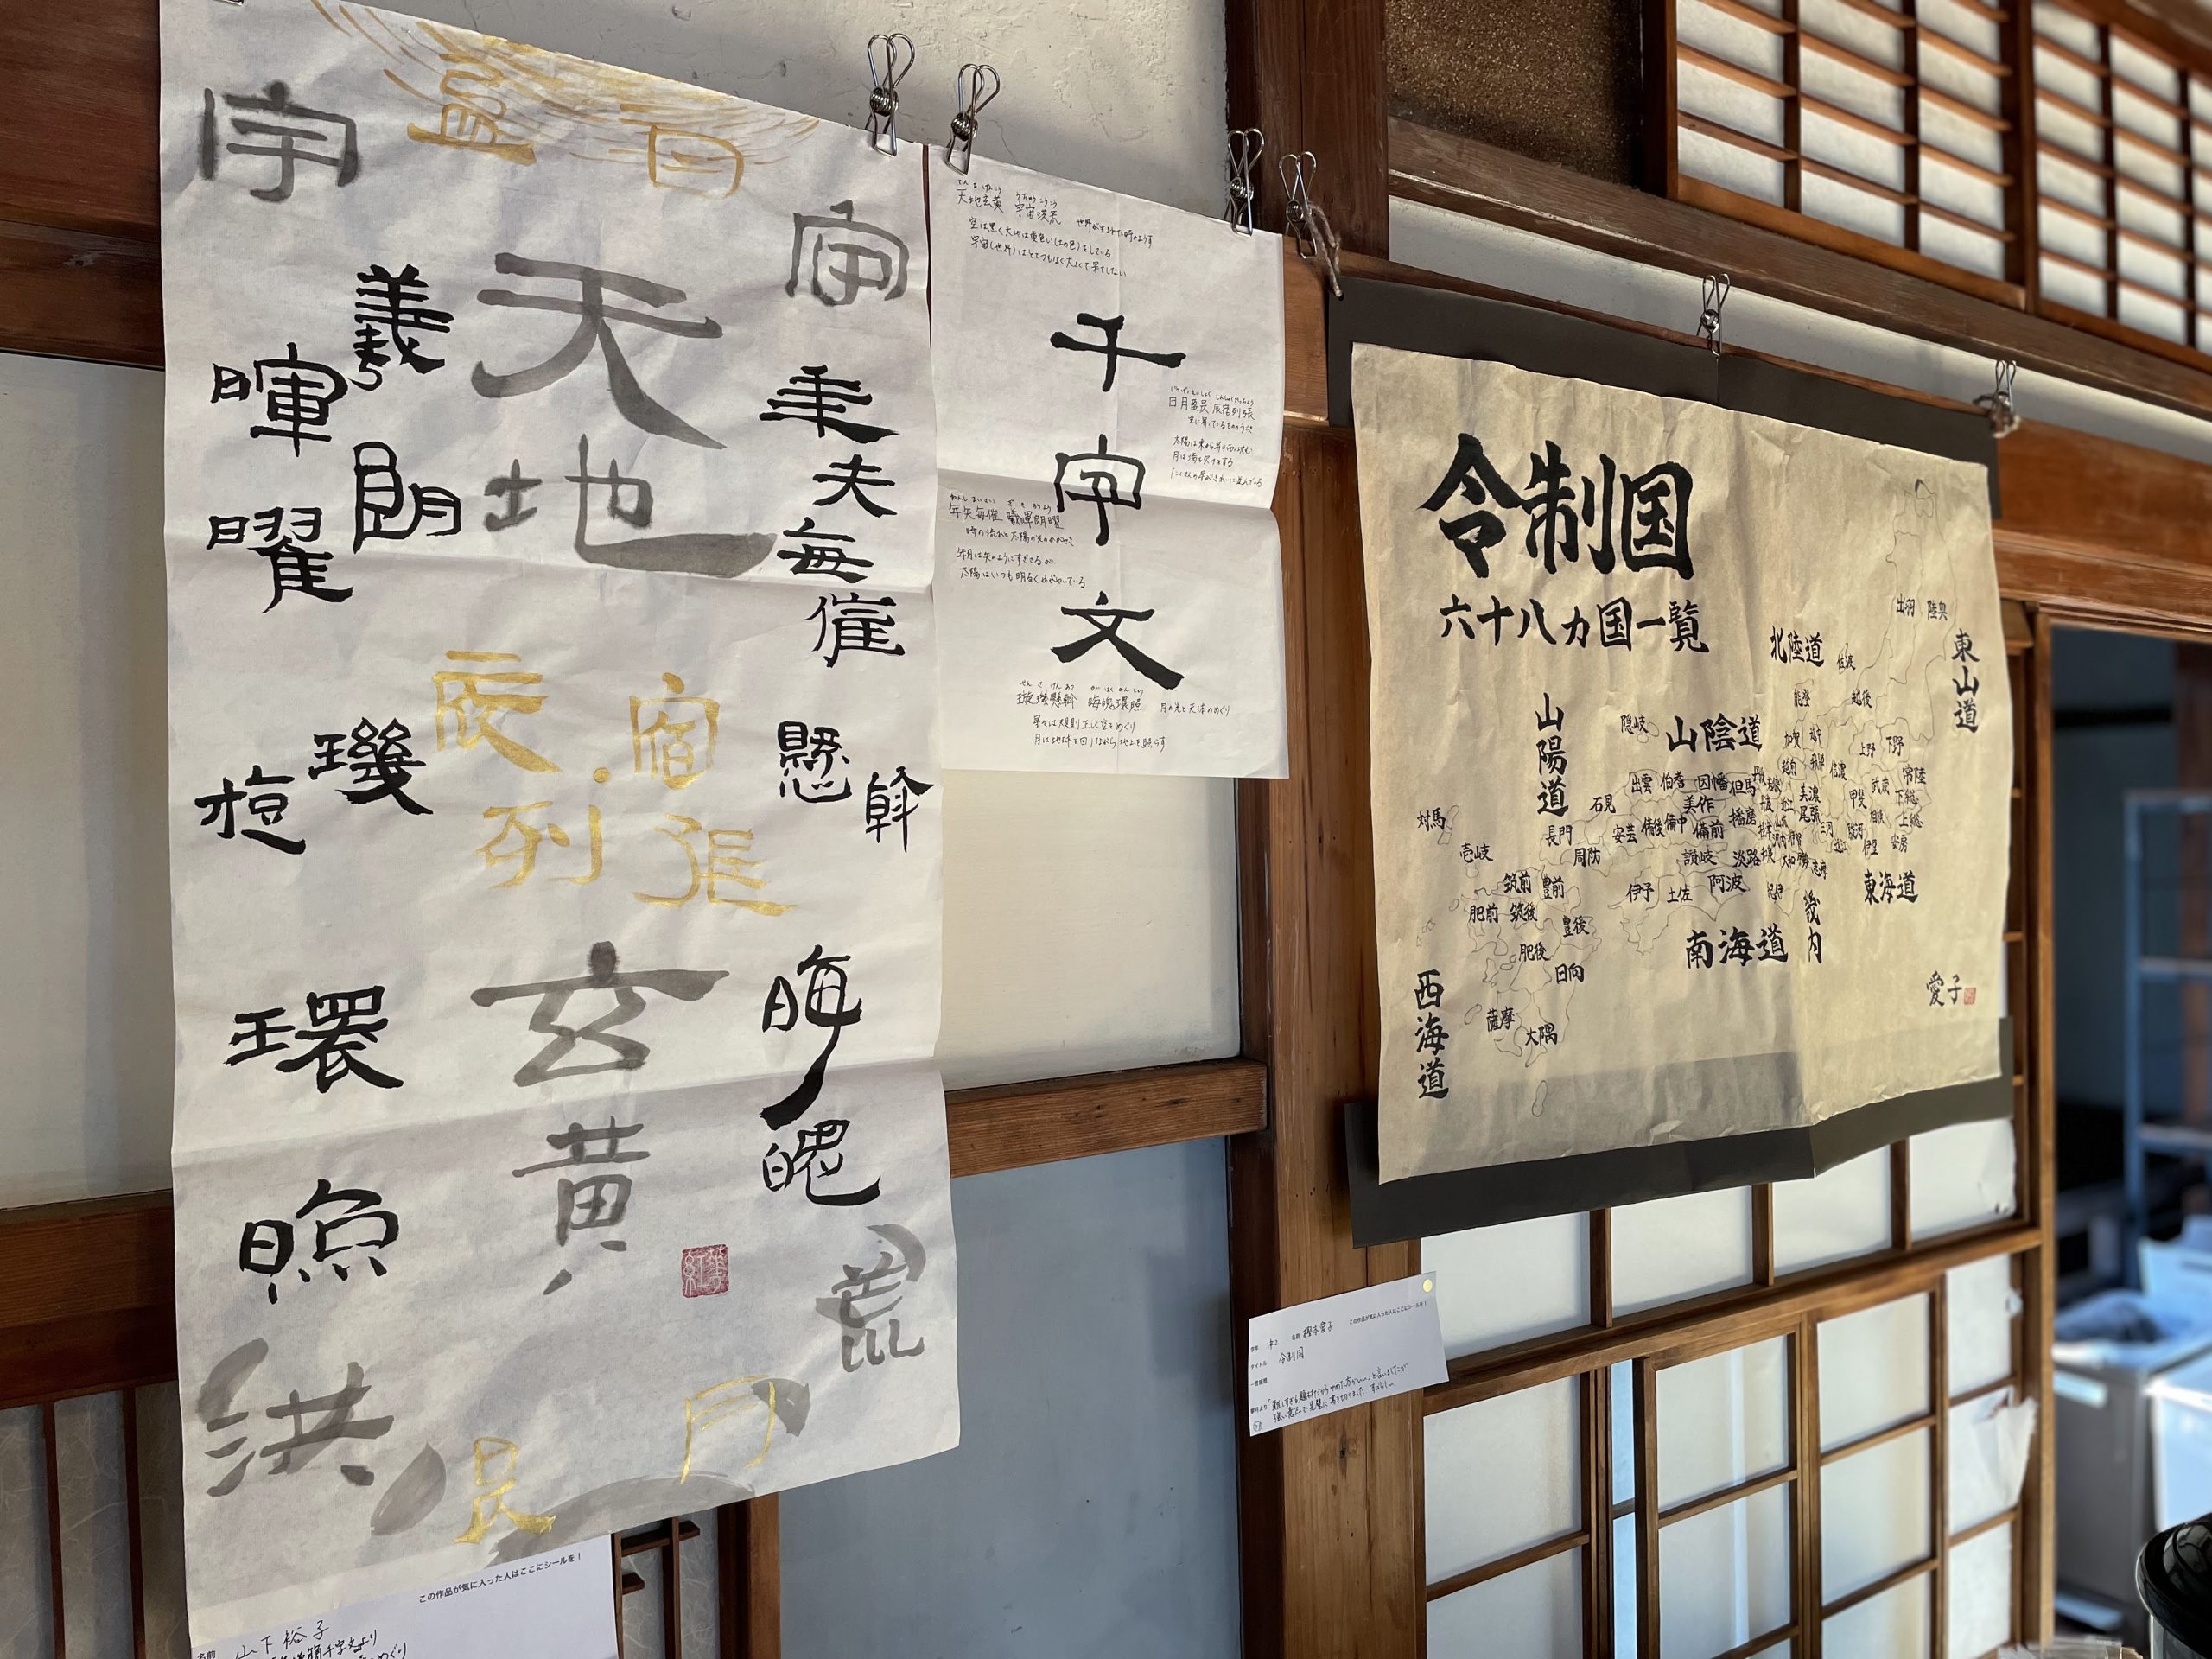 宇
盈
日
宙
天
地
羲
暉
朗
曜
年
矢
毎
催
辰
宿
列
張
璇
璣
懸
斡
玄
黄
晦
魄
環
照
荒
洪
月
昃
この作品が気に入った人はここにシールを!
名前 山下裕子
天地玄黄 宇宙洪荒 世界が生まれた時のようす
空は黒く大地は黄色い(土の色)をしている
宇宙(世界)はとてつもなく大きくて果てしない
千字文
日月盈昃 辰宿列張
空に昇っているもののうた
太陽は東から昇り西に沈む
月は満ち欠けをする
たくさんの星がきれいに並んでいる
年矢毎催 曦暉朗曜
時の流れと太陽の光のかがやき
年月は矢のようにすぎさるが
太陽はいつも明るくかがやいている
せん き けん あつ
璇璣懸斡 晦魄環照 月の光と天体のめぐり
星々は規則正しく空をめぐり
月は地球を回りながら地上を照らす
令制国
六十八カ国一覧
北陸道
東山道
山陽道
山陰道
東海道
南海道
畿内
西海道
出羽 陸奥
佐渡
能登
越後
隠岐
加賀
上野
下野
信濃
武蔵
常陸
甲斐
下総
上総
安房
伊豆
駿河
三河
美濃
尾張
出雲
伯耆
因幡
但馬
石見
美作
播磨
安芸
備後
備中
備前
長門
周防
対馬
壱岐
讃岐
淡路
伊予
土佐
阿波
紀伊
志摩
筑前
豊前
肥前
筑後
豊後
肥後
日向
薩摩
大隅
愛子
この作品が気に入った人はここにシールを!
学年 中2
タイトル 令制国